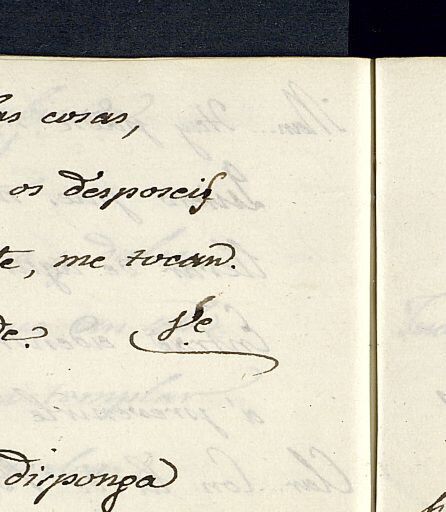 as cosas,
os desposeis
te, me tocan.
de. Ve
disponga